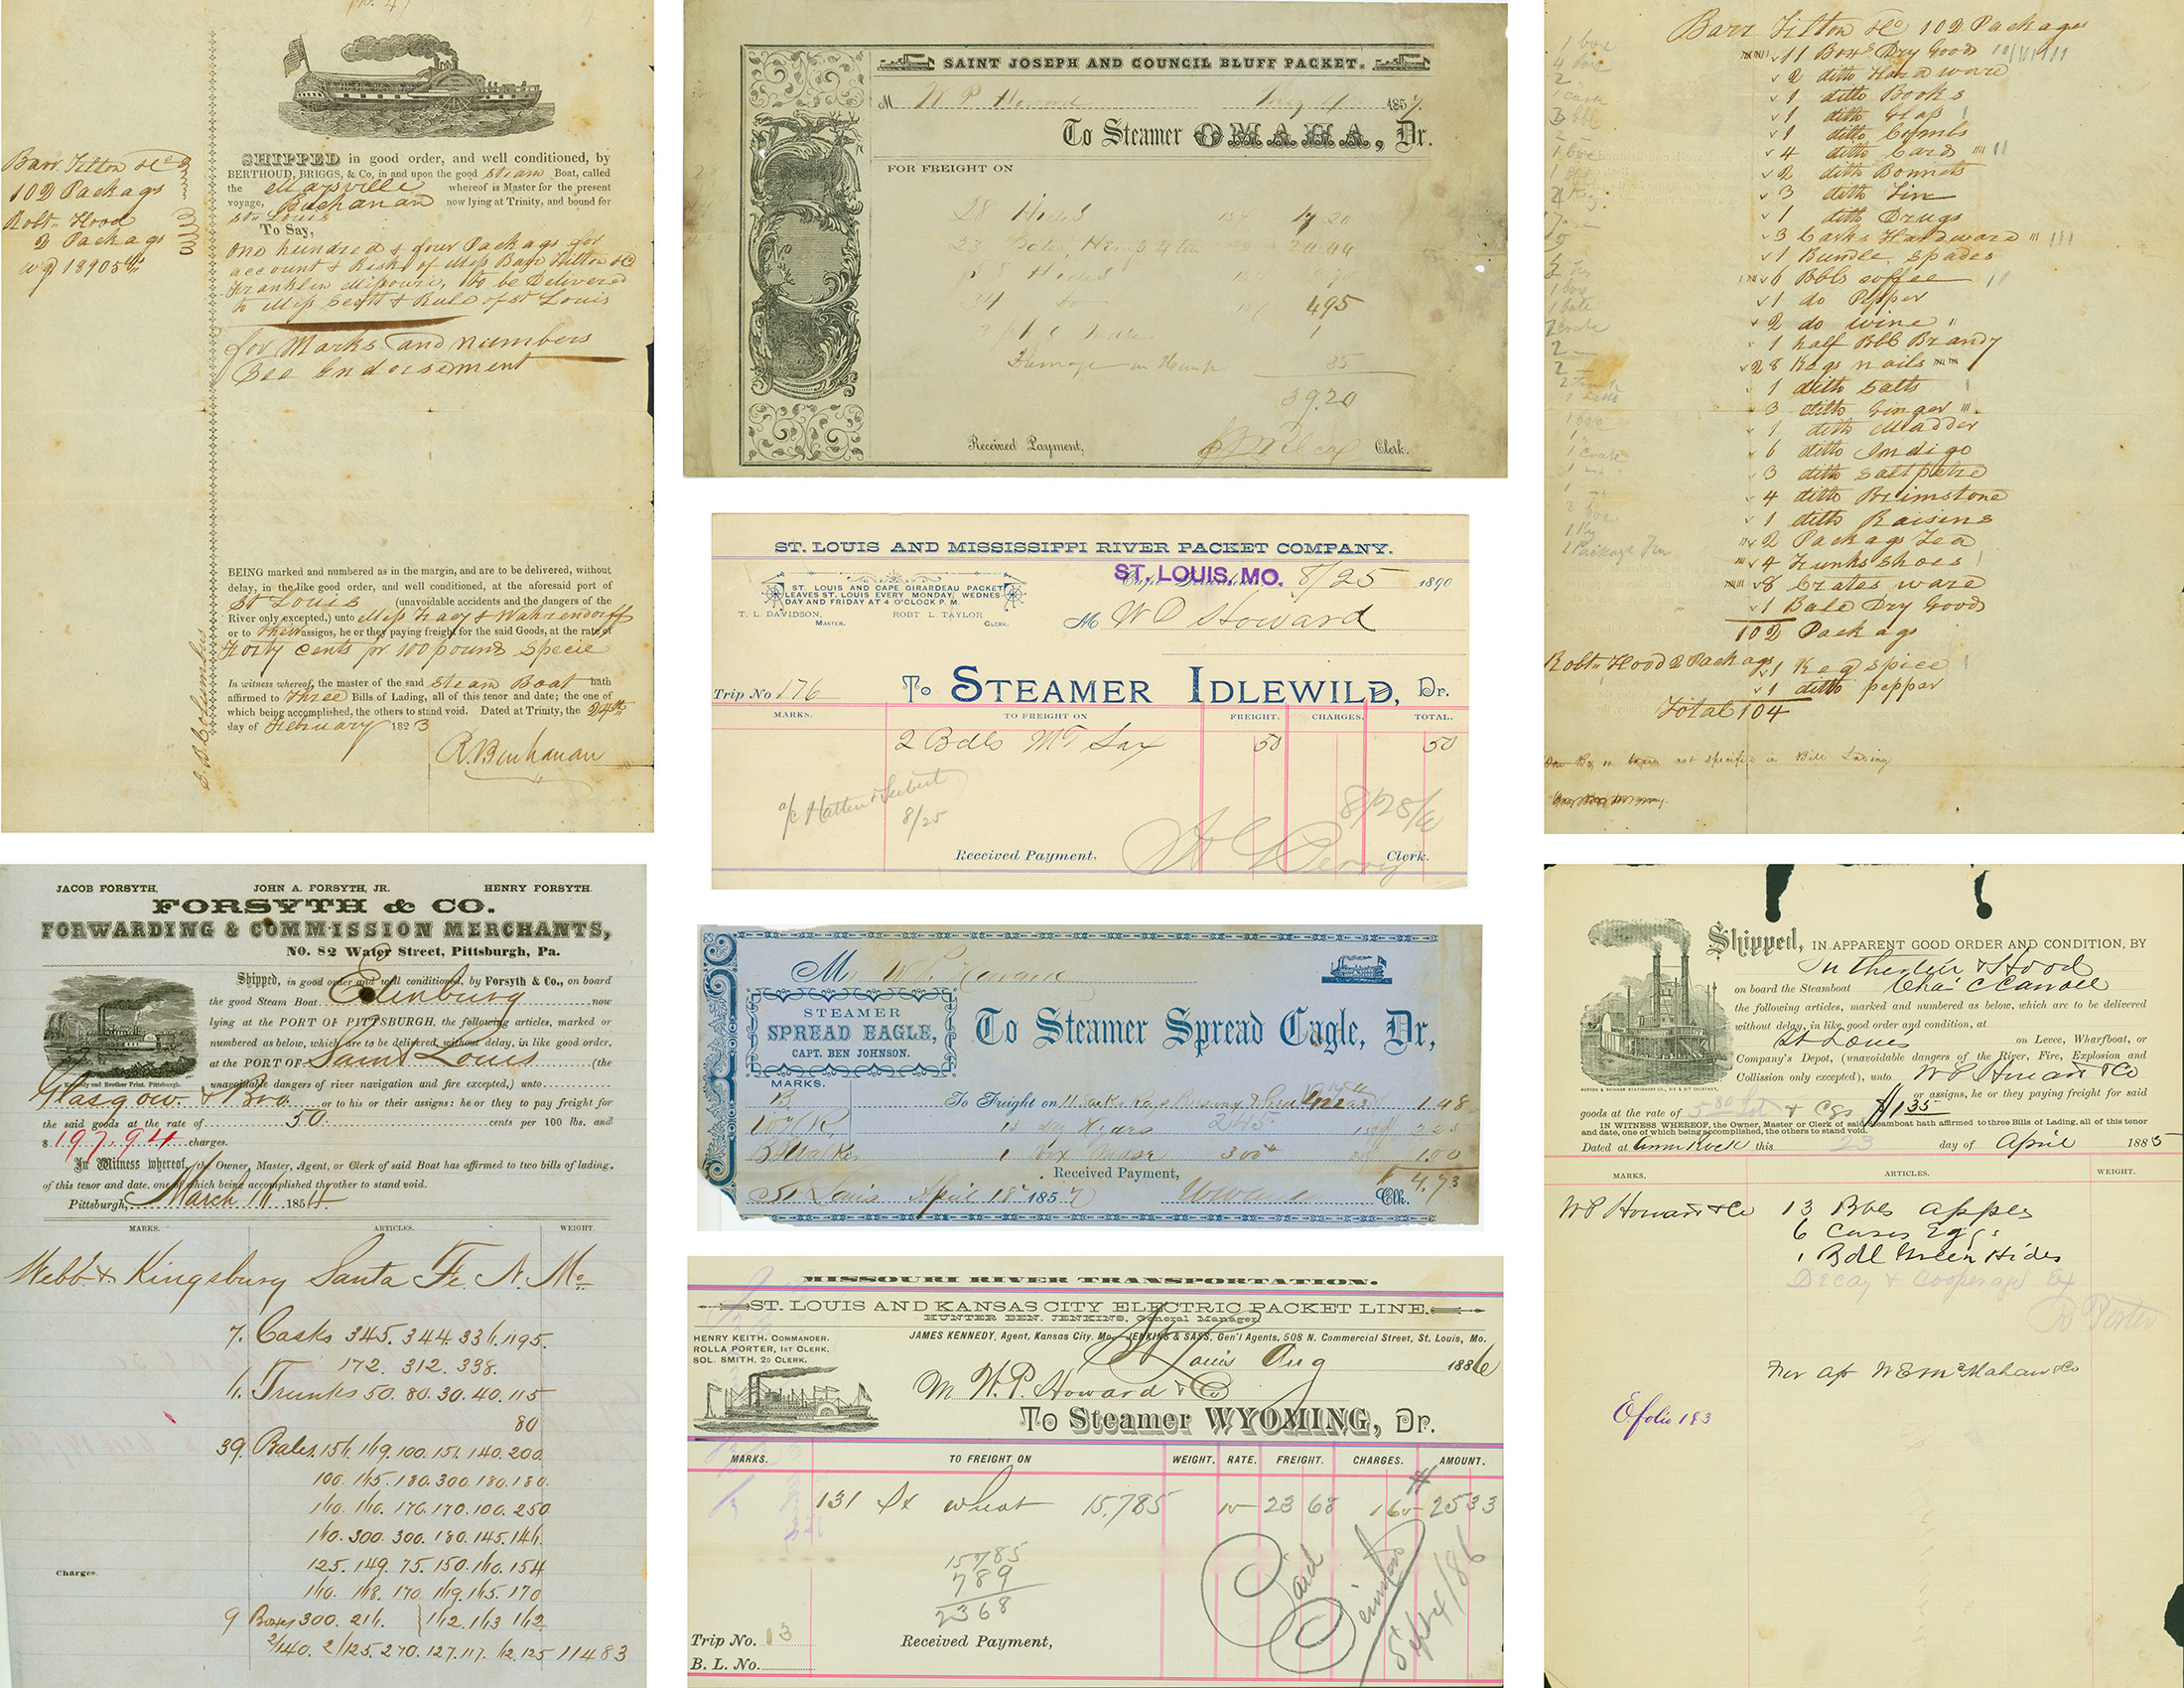 Barr Tilton & Co
102 Packags
Robt. Hood
2 Packags
SHIPPED in good order, and well conditioned, by
BERTHOUD, BRIGGS, & Co, in and upon the good Steam Boat, called
the Maysville whereof is Master for the present
voyage, Buchanan now lying at Trinity, and bound for
St. Louis
To Say,
One hundred & four Packags for
account & Risk of Mess Barr Tilton & Co
Franklin Missouri, to be Delivered
to Mess Scott & Rule of St Louis
for Marks and numbers
See Endorsement
BEING marked and numbered as in the margin, and are to be delivered, without
delay, in the like good order, and well conditioned, at the aforesaid port of
St Louis (unavoidable accidents and the dangers of the
River only excepted,) unto Mess Tracy & Wahrendorff
or to their assigns, he or they paying freight for the said Goods, at the rate of
Forty Cents pr 100 pounds Specie
In witness whereof, the master of the said Steam Boat hath
affirmed to Three Bills of Lading, all of this tenor and date; the one of
which being accomplished, the others to stand void. Dated at Trinity, the 24th
day of February 1823
R. Buchanan
SAINT JOSEPH AND COUNCIL BLUFF PACKET.
M W P Howard 1857.
To Steamer OMAHA, Dr.
FOR FREIGHT ON
28 Hides
23 Bales Hemp
Hides
34 495
Damage on Hemp 35
39.20
Received Payment, Clerk.
Barr Tilton & Co 102 Packages
11 Boxs Dry Goods
2 ditto Hardware
1 ditto Books
1 ditto
1 ditto Combs
4 ditto Cards
2 ditto Bonnets
3 ditto Tin
1 ditto Drugs
3 Casks Hardware
1 Bundle Spades
6 Bbls Coffee
1 do Pepper
2 do wine
1 half Bbl Brandy
28 Kegs nails
1 ditto Salts
3 ditto Ginger
1 ditto Madder
6 ditto Indigo
3 ditto Saltpetre
4 ditto Brimstone
1 ditto Raisins
2 Packags Tea
4 Trunks Shoes
8 Crates ware
1 Bale Dry Goods
102 Packags
Robt. Hood 2 Packags 1 Keg Spice
1 ditto pepper
Total 104
not specified in Bill Lading
ST. LOUIS AND MISSISSIPPI RIVER PACKET COMPANY.
ST. LOUIS AND CAPE GIRARDEAU PACKET
LEAVES ST. LOUIS EVERY MONDAY, WEDNES-
DAY AND FRIDAY AT 4 O'CLOCK P. M.
ST. LOUIS, MO. 8/25 1890
T. L. DAVIDSON, MASTER. ROBT L. TAYLOR, CLERK.
M W P Howard
Trip No 176 To STEAMER IDLEWILD, Dr.
MARKS. TO FREIGHT ON FREIGHT. CHARGES. TOTAL.
2 Bdls MT Sax 50 50
8/25
Received Payment, Clerk.
JACOB FORSYTH, JOHN A. FORSYTH, JR. HENRY FORSYTH.
FORSYTH & CO.
FORWARDING & COMMISSION MERCHANTS,
NO. 82 Water Street, Pittsburgh, Pa.
Shipped, in good order and well conditioned, by Forsyth & Co., on board
the good Steam Boat Edinburg now
lying at the PORT OF PITTSBURGH, the following articles, marked or
numbered as below, which are to be delivered, without delay, in like good order,
at the PORT OF Saint Louis (the
unavoidable dangers of river navigation and fire excepted,) unto
Glasgow & Bro. or to his or their assigns: he or they to pay freight for
the said goods at the rate of 50. cents per 100 lbs. and
$197.94 charges.
In Witness whereof, the Owner, Master, Agent, or Clerk of said Boat has affirmed to two bills of lading,
of this tenor and date, one of which being accomplished the other to stand void.
Pittsburgh, March 1854
MARKS. ARTICLES. WEIGHT.
Webb & Kingsbury Santa Fe N. Mo
7. Casks 345. 344. 336. 1195.
172. 312. 338.
6. Trunks 50. 80. 30. 40. 115
80
39. Bales 156. 169. 100. 151. 140. 200
100. 165. 180. 300. 180. 180.
160. 160. 170. 170. 100. 250
160. 300. 300. 180. 145. 146.
125. 149. 75. 150. 160. 154
160. 168. 170. 169. 165. 170
9 Boxes 300. 216. 162 163 162
2/140. 2/125. 270. 127. 117. 62. 125 11483
Charges.
Mr W. P. Howard
STEAMER
SPREAD EAGLE,
CAPT. BEN JOHNSON.
To Steamer Spread Eagle, Dr,
MARKS.
To Freight on 11 Sacks 1.48
13 Dry Hides 245 2.25
1 Box Mdse 300 1.00
Received Payment, $4.73
St Louis April 18 1857 Clk.
MISSOURI RIVER TRANSPORTATION.
ST. LOUIS AND KANSAS CITY ELECTRIC PACKET LINE.
HUNTER BEN. JENKINS, General Manager
HENRY KEITH, COMMANDER.
ROLLA PORTER, 1ST CLERK.
SOL. SMITH, 2D CLERK.
JAMES KENNEDY, Agent, Kansas City, Mo. JENKINS & SASS, Gen'l Agents, 508 N. Commercial Street, St. Louis, Mo.
St Louis Aug 1886
M W. P. Howard & Co
To Steamer WYOMING, Dr.
MARKS. TO FREIGHT ON WEIGHT. RATE. FREIGHT. CHARGES. AMOUNT.
131 Sx wheat 15.785 15 23 68 165 25 33
15785
789
2368
Paid
Sept 4/86
Trip No. 13 Received Payment,
B. L. No.
Shipped, IN APPARENT GOOD ORDER AND CONDITION, BY
on board the Steamboat Chas C Carroll
the following articles, marked and numbered as below, which are to be delivered
without delay, in like good order and condition, at
St Louis on Levee, Wharfboat, or
Company's Depot, (unavoidable dangers of the River, Fire, Explosion and
Collission only excepted), unto W P Howard & Co
or assigns, he or they paying freight for said
goods at the rate of & Cgs $1.35
IN WITNESS WHEREOF, the Owner, Master or Clerk of said Steamboat hath affirmed to three Bills of Lading, all of this tenor
and date, one of which being accomplished, the others to stand void.
Dated at this 23 day of April 1885
MARKS. ARTICLES. WEIGHT.
W P Howard & Co 13 Bbls apples
6 Cases Eggs
1 Bdl Green Hides
Decay & Cooperage Ex
R Porter
W E McMahan & Co
folio 183